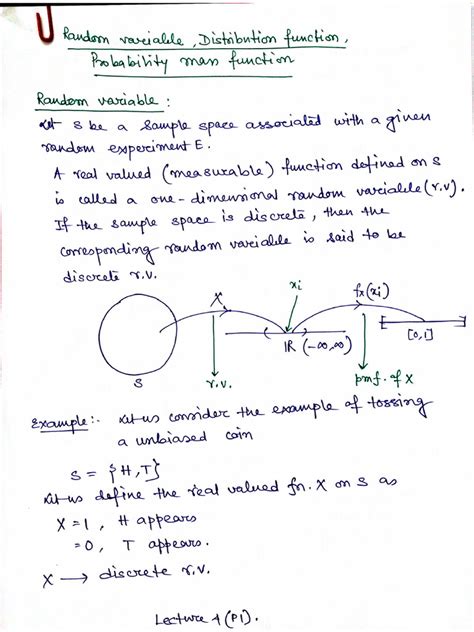 Random variable, Distribution function,
Probability mass function
Random variable :
Let S be a sample space associated with a given
random experiment E.
A real valued (measurable) function defined on S
is called a one-dimensional random variable (r.v).
If the sample space is discrete, then the
corresponding random variable is said to be
discrete r.v.
X xi fx(xi)
IR (-∞,∞) [0,1]
S r.v. pmf. of X
Example:- Let us consider the example of tossing
a unbiased coin
S = {H,T}
Let us define the real valued fn. X on S as
X = 1, H appears
= 0, T appears.
X → discrete r.v.
Lecture 4 (P1).